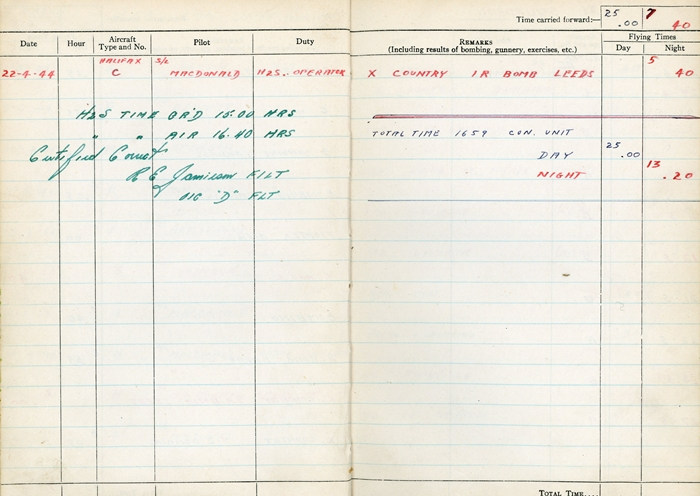 Time carried forward:— 25 .00 7 40
Date Hour Aircraft Type and No. Pilot Duty REMARKS (Including results of bombing, gunnery, exercises, etc.) Flying Times Day Night
22-4-44 HALIFAX C S/L MACDONALD H2S. OPERATOR X COUNTRY IR BOMB LEEDS 5 40
H2S TIME GR'D 15.00 HRS
" " AIR 16.40 HRS
TOTAL TIME 1659 CON. UNIT
Certified Correct
DAY 25 .00
R E Jamieson F/LT
NIGHT 13 .20
O/C "D" FLT
TOTAL TIME....